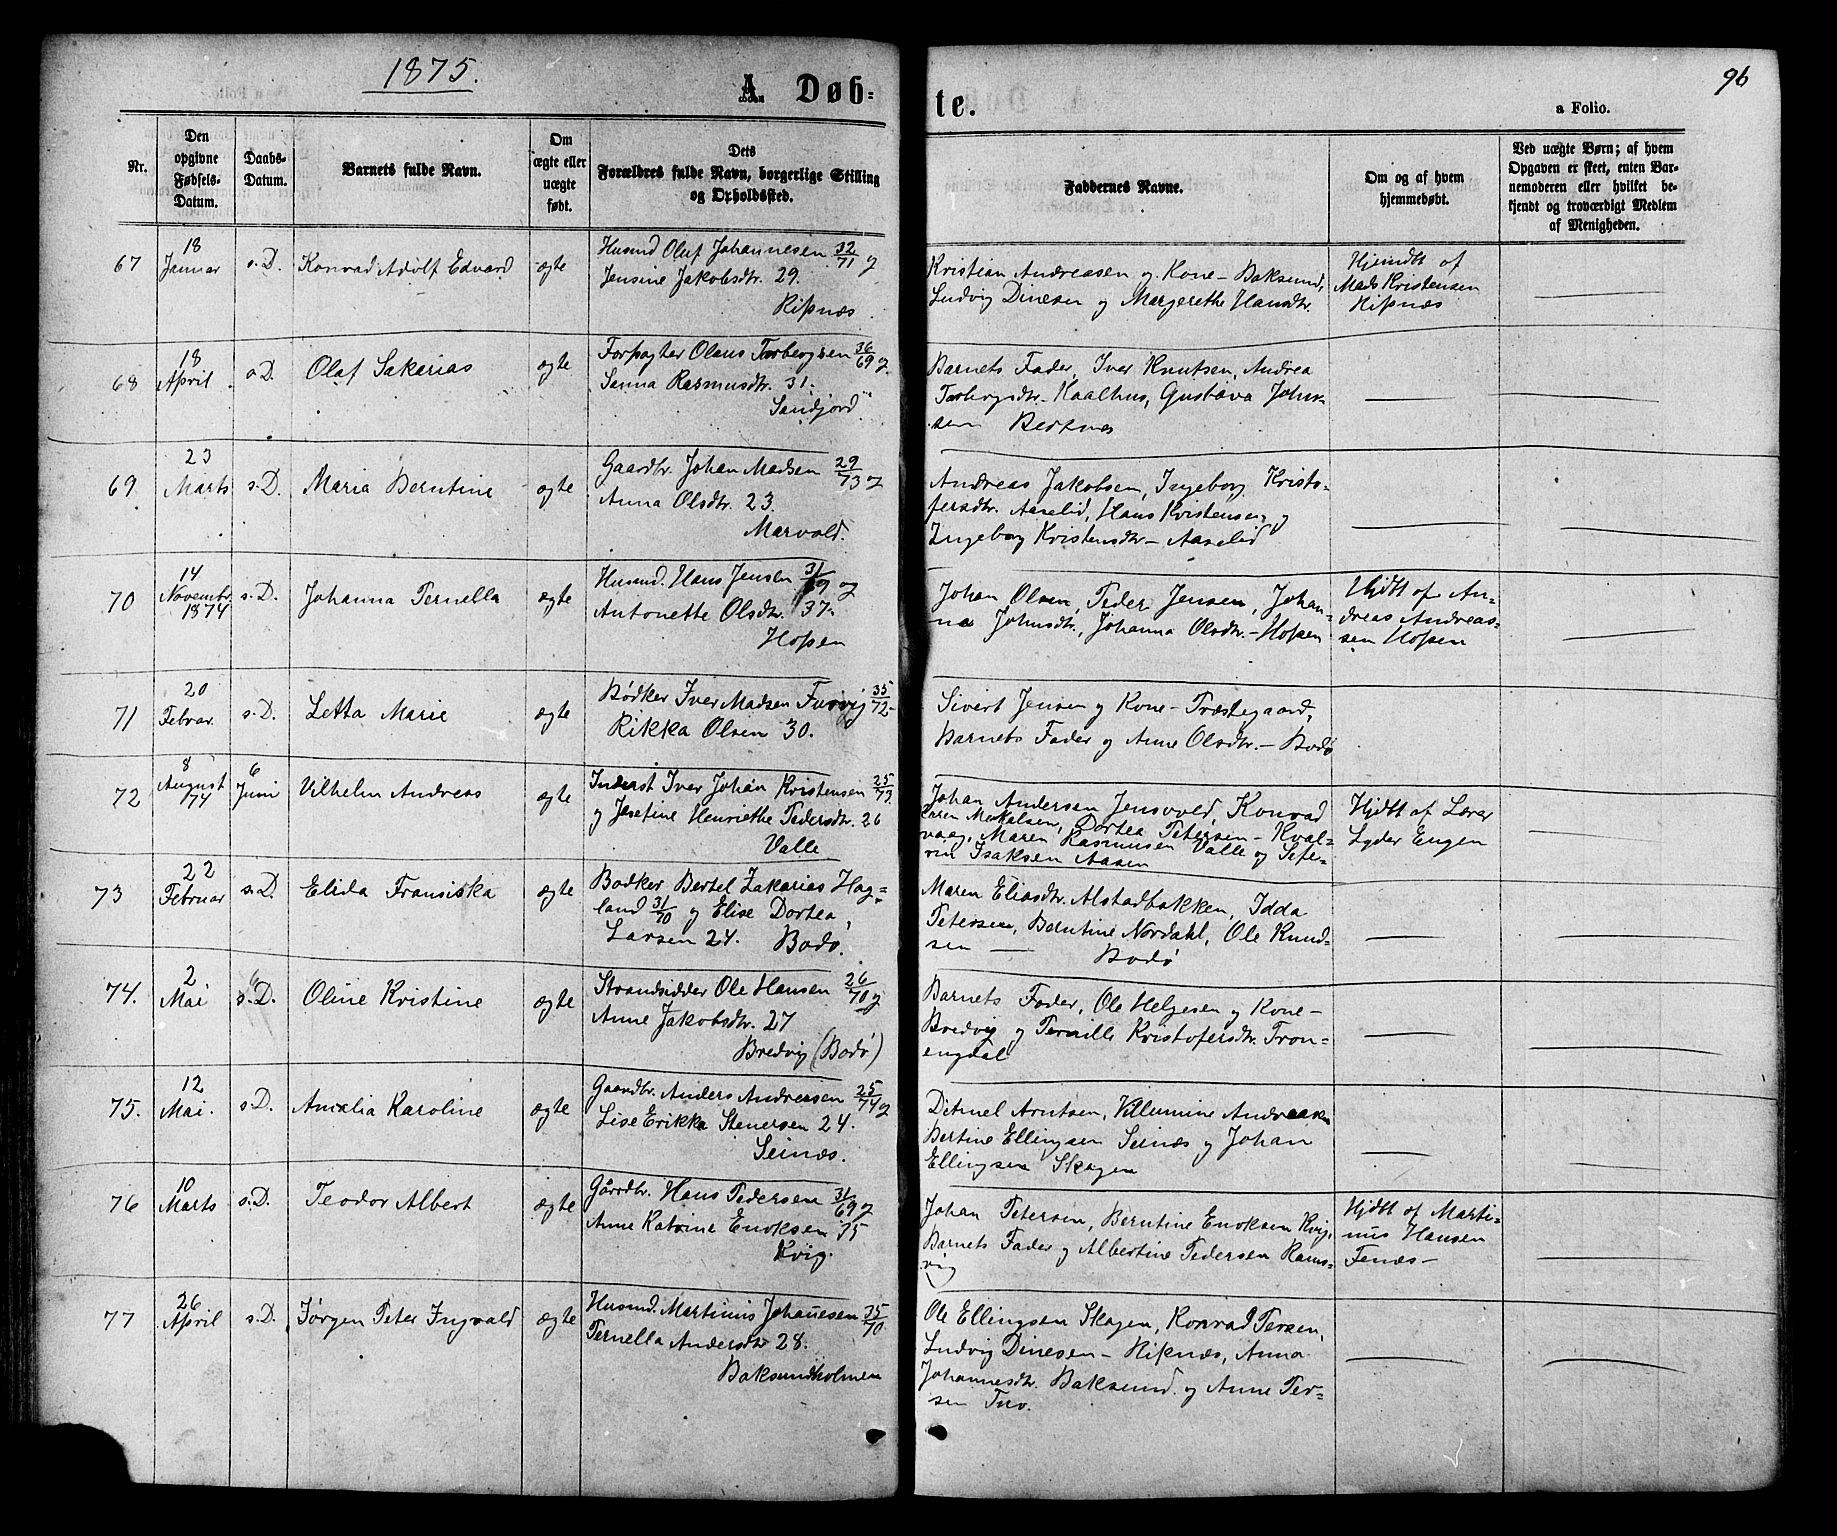 1875.
96
A. Døb-
te.
a Folio.
Nr.
Den
opgivne
Fødsels-
Datum.
Daabs-
Datum.
Barnets fulde Navn.
Om
ægte eller
uægte
født.
Dets
Forældres fulde Navn, borgerlige Stilling
og Opholdssted.
Faddernes Navne.
Om og af hvem
hjemmedøbt.
Ved uægte Børn; af hvem
Opgaven er skeet, enten Bar-
nemoderen eller hvilket be-
kjendt og troværdigt Medlem
af Menigheden.
67
18
Januar
s.D.
Konrad Adolf Edvard
ægte
Husmd Oluf Johannesen 32/71 og
Jensine Jakobsdtr. 29.
Ripnæs
Kristian Andreasen og Kone – Baksund,
Ludvig Dinesen og Margrethe Hansdtr.
Hjemdt af
Mads Kristensen
Ripnæs
68
18
April
s.D.
Olaf Sakarias
ægte
Forpagter Olaus Torbergsen 36/69 og
Sanna Rasmusdtr. 31.
Sandjord
Barnets Fader, Iver Knutsen, Andrea
Torbergsdtr. Kaalhus, Gustava John-
sen Bertnes
69
23
Marts
s.D.
Maria Berntine
ægte
Gaardbr. Johan Madsen 29/73 og
Anna Olsdtr. 23.
Marvold.
Andreas Jakobsen, Ingeborg Kristo-
fersdtr. Aaselid, Hans Kristensen og
Ingeborg Kristensdtr – Aaselid
70
14
Novembr.
1874
s.D.
Johanna Pernella
ægte
Husmd. Hans Jensen 31/69 og
Antonette Olsdtr. 37.
Hopen
Johan Olsen, Peder Jensen, Johan-
na Johnsdtr., Johanna Olsdtr. – Hopen
Hjdtt af An-
dreas Andreas-
sen Hopen
71
20
Februar.
s.D.
Letta Marie
ægte
Bødker Iver Madsen Furvig 35/72 –
Rikka Olsen 30.
Sivert Jensen og Kone – Præstegaard,
Barnets Fader og Anne Olsdtr. – Bodø
72
8
August
74
6
Juni
Vilhelm Andreas
ægte
Inderst Iver Johan Kristensen 25/73
og Josefine Henriethe Pedersdtr. 26
Valle
Johan Andersen Jensvold, Konrad
Karen Mikalsen, Dortea Petersen – Kval-
vaag, Maren Rasmusen Valle og Sefe-
rin Isaksen Aasen
Hjdtt af Lærer
Lyder Engen
73
22
Februar
s.D.
Elida Fransiska
ægte
Bødker Bertel Zakarias Hag-
land 31/70 og Elise Dortea
Larsen 24. Bodø.
Maren Eliasdtr. Alstadbakken, Idda
Petersen, Berntine Nordahl, Ole Knud-
sen — Bodø
74.
2
Mai
s.D.
Oline Kristine
ægte
Strandsidder Ole Hansen 26/70 og
Anne Jakobsdtr. 27
Bredvig (Bodø)
Barnets Fader, Ole Helgesen og Kone –
Bredvig og Pernille Kristofersdtr. Tron-
engdal
75.
12
Mai.
s.D.
Amalia Karoline
ægte
Gaardbr. Anders Andersen 25/74 og
Lise Erikka Stenersen 24.
Seinæs.
Ditmel Arntsen, Villumine Andreasen
Bertine Ellingsen Seinæs og Johan
Ellingsen Skagen
76
10
Marts
s.D.
Teodor Albert
ægte
Gårdbr. Hans Pedersen 31/69 og
Anne Katrine Enoksen 35
Kvig.
Johan Petersen, Berntine Enoksen Kvig,
Barnets Fader og Albertine Pedersen Rams-
vig
Hjdtt af Marti-
nus Hansen
Fenæs –
77
26
April
s.D.
Jørgen Peter Ingvald
ægte
Husmd. Martinus Johanesen 35/70
Pernella Andersdtr 28.
Baksundholmen
Ole Ellingsen Skagen, Konrad Persen,
Ludvig Dinesen – Ripnæs, Anna
Johannesdtr. Baksund. og Anne Per-
sen Tuv.